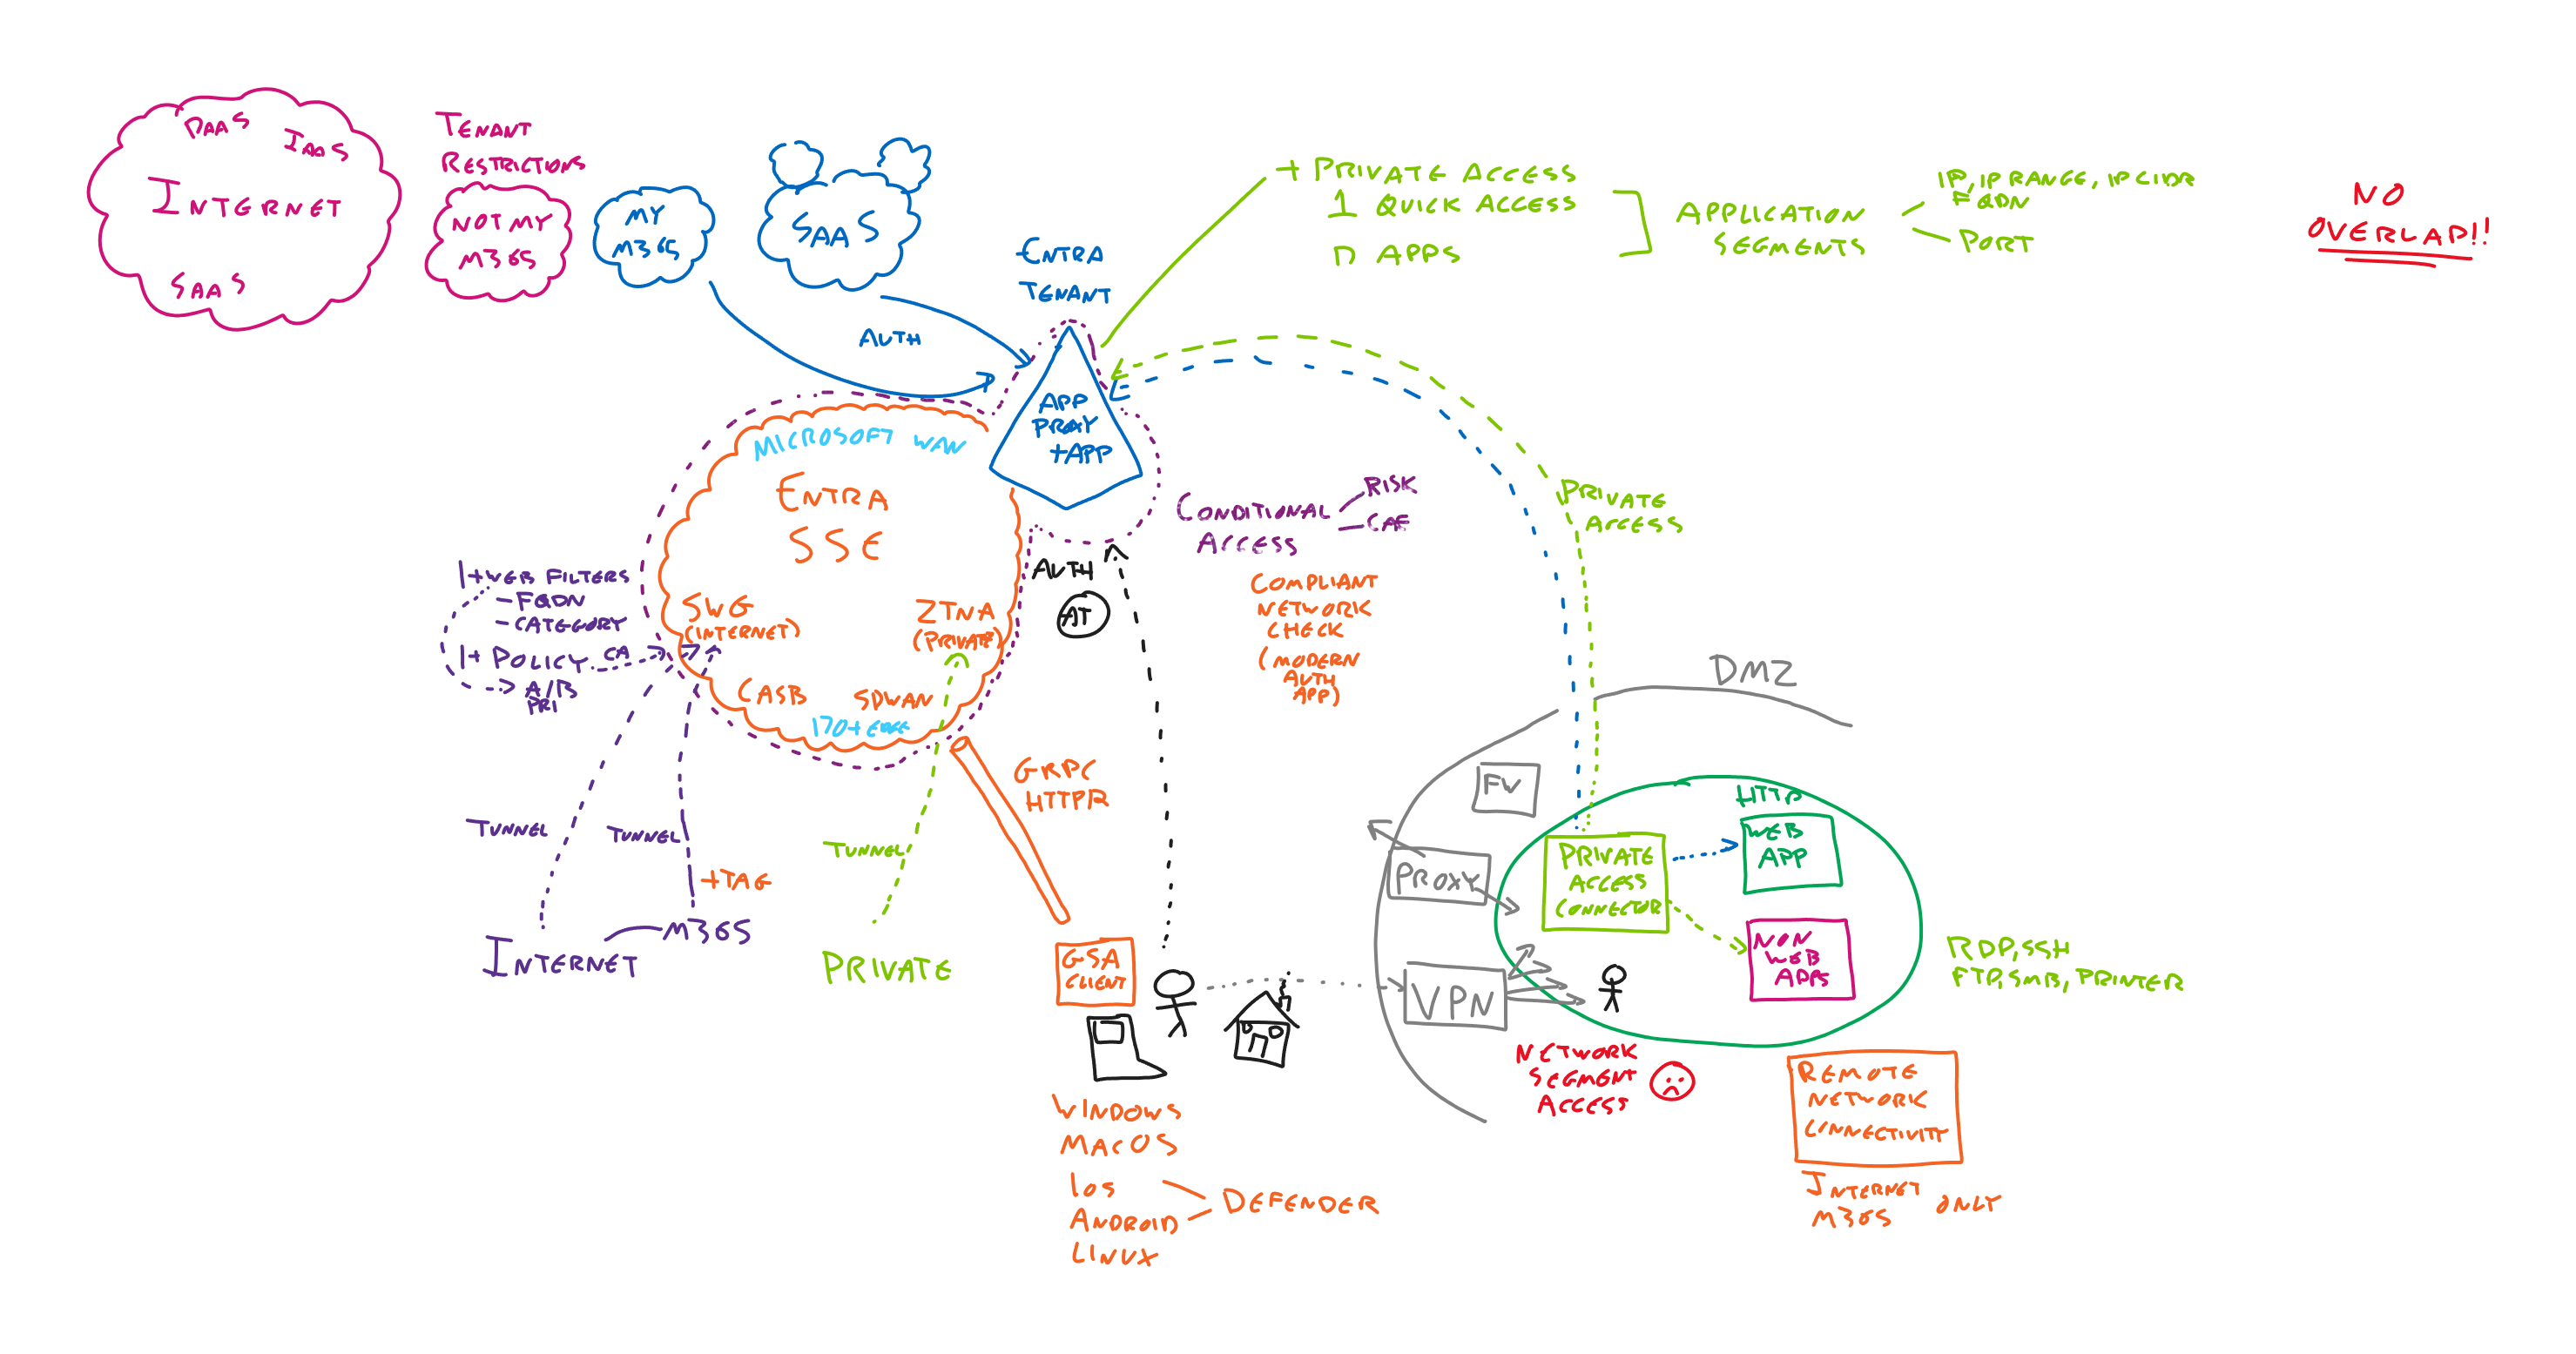 PAAS
IAAS
INTERNET
SAAS
TENANT
RESTRICTIONS
NOT MY
M365
MY
M365
SAAS
AUTH
ENTRA
TENANT
+ PRIVATE ACCESS
1 QUICK ACCESS
n APPS
APPLICATION
SEGMENTS
IP, IP RANGE, IP CIDR
FQDN
PORT
NO
OVERLAP!!
APP
PROXY
+APP
MICROSOFT WAN
ENTRA
SSE
SWG
(INTERNET)
ZTNA
(PRIVATE)
CASB
SDWAN
170+ EDGE
1+ WEB FILTERS
- FQDN
- CATEGORY
1+ POLICY
CA
A/B
PRI
AUTH
AT
CONDITIONAL
ACCESS
RISK
CAE
COMPLIANT
NETWORK
CHECK
(MODERN
AUTH
APP)
PRIVATE
ACCESS
DMZ
FW
PROXY
VPN
HTTP
WEB
APP
PRIVATE
ACCESS
CONNECTOR
NON
WEB
APPS
RDP, SSH
FTP, SMB, PRINTER
NETWORK
SEGMENT
ACCESS
REMOTE
NETWORK
CONNECTIVITY
INTERNET
M365
ONLY
GRPC
TUNNEL
TUNNEL
+TAG
INTERNET
M365
TUNNEL
PRIVATE
GSA
CLIENT
WINDOWS
MACOS
IOS
ANDROID
LINUX
DEFENDER